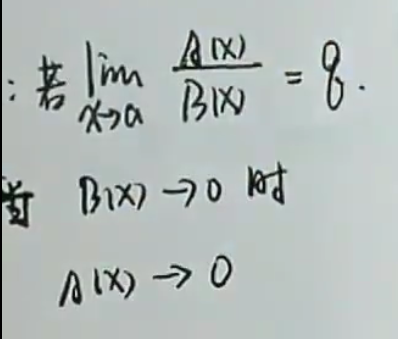 : 若 lim x→a A(x)/B(x) = 8.
当 B(x) → 0 时
A(x) → 0